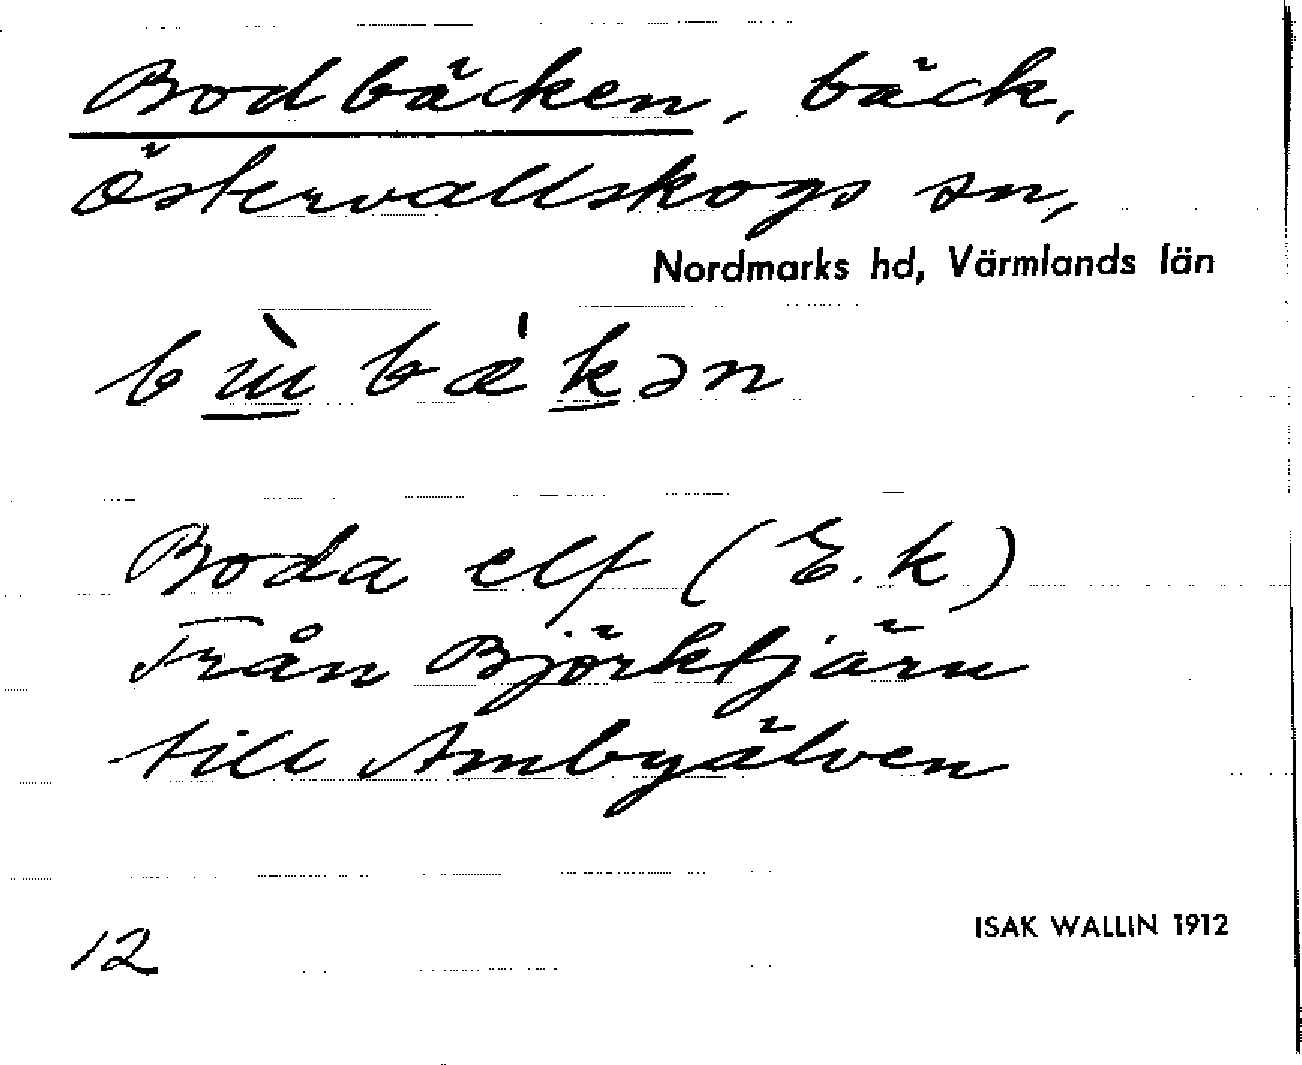 Bodbäcken, bäck,
Östervallskogs sn,
Nordmarks hd, Värmlands län
Boda elf (E.k)
Från Björktjärn
till Ambyälven
12 ISAK WALLIN 1912